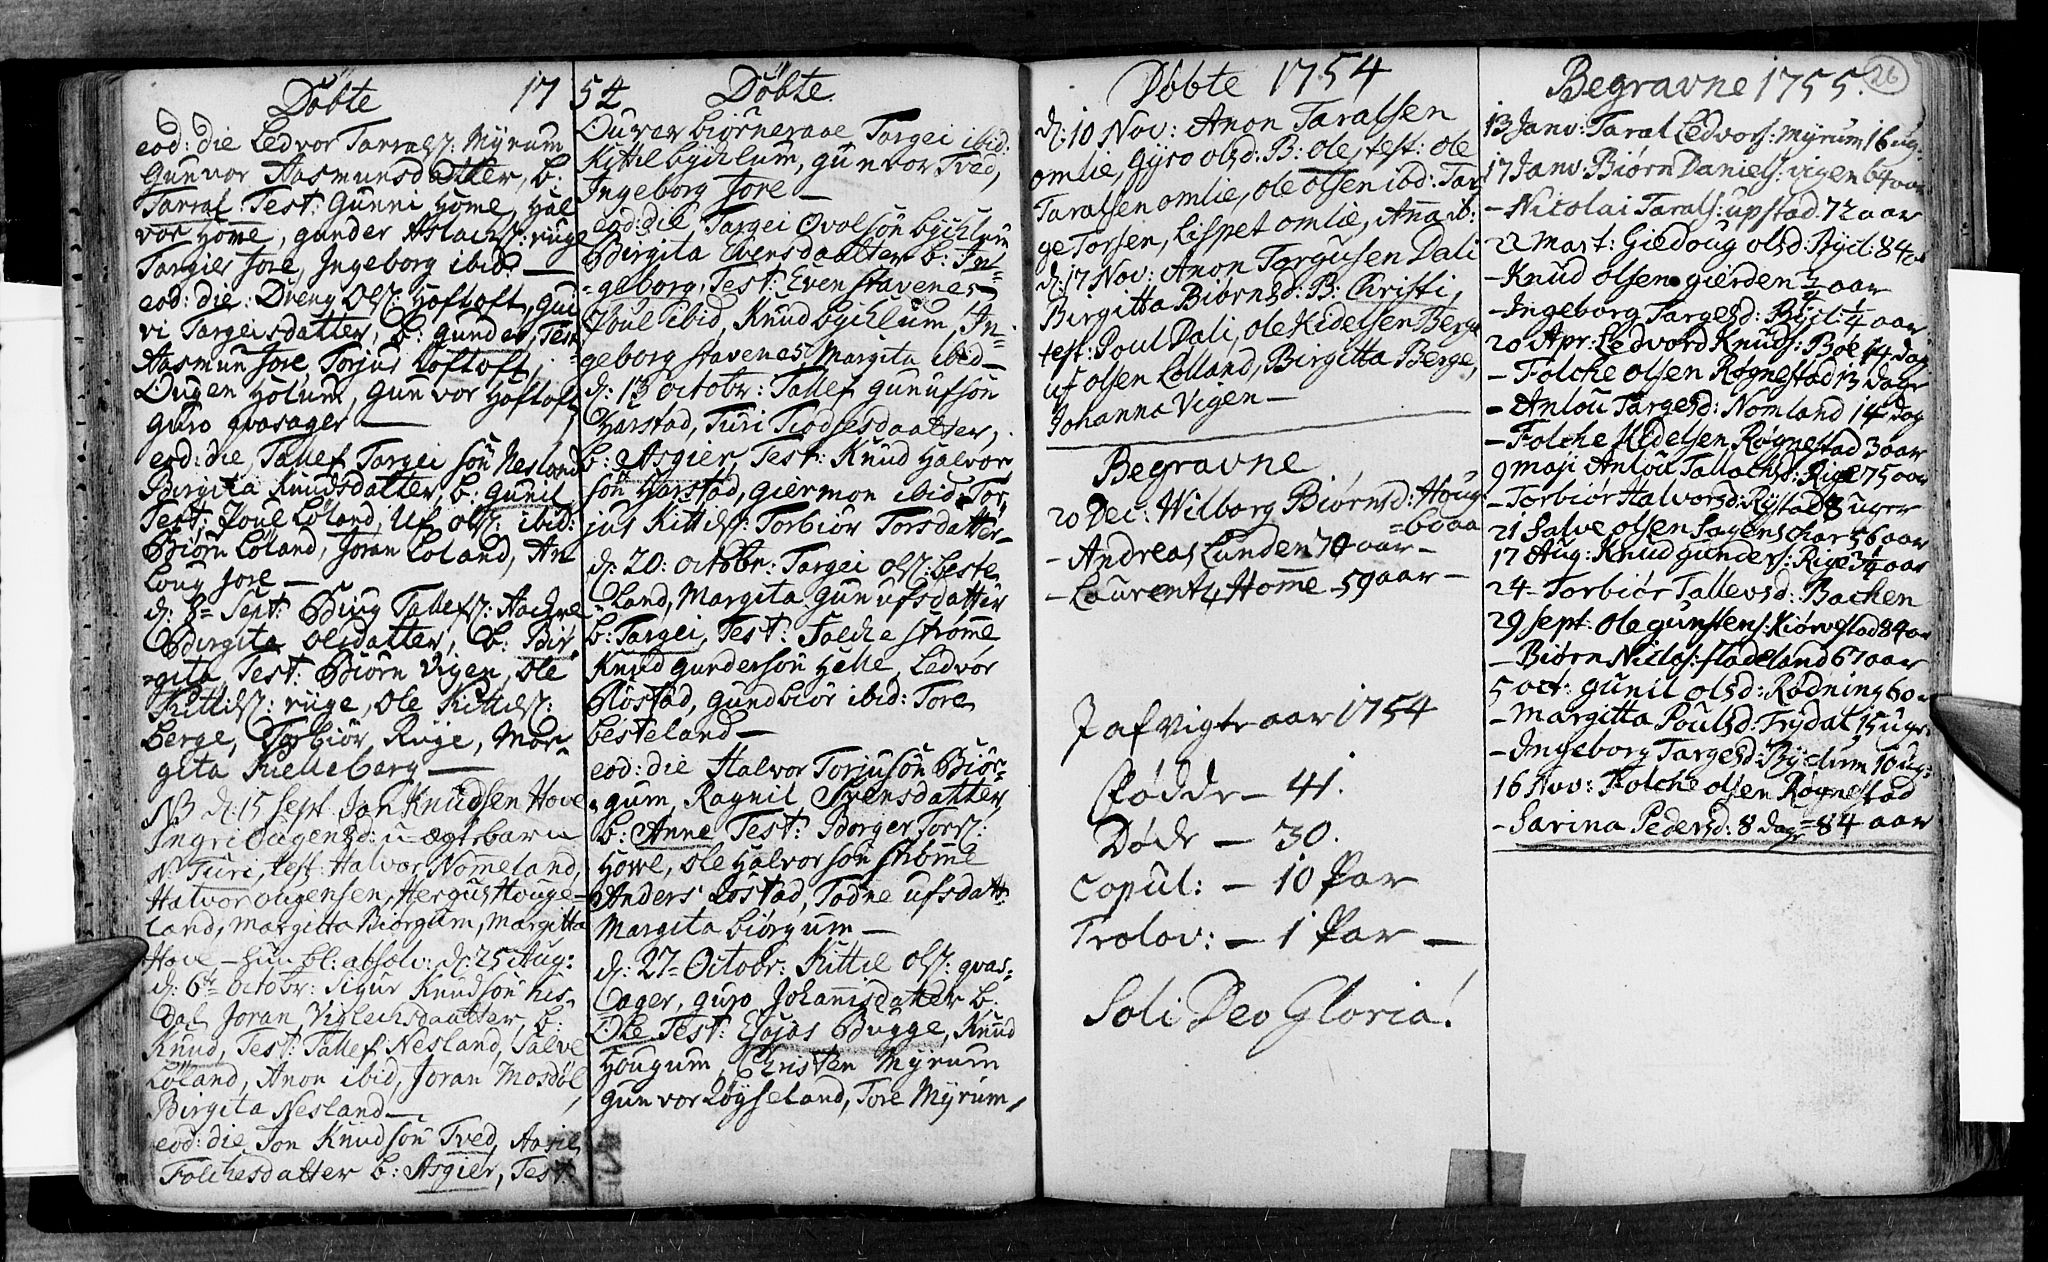 Döbte 17
eod: die Ledvor Tarrals: Myrum
Gunvor Aasmunsdatter, b.
Tarral. Test: Gunni Home, Hal
vor Home, gunder Aslachs: ruge
Targier Jore, Ingeborg ibid: —
eod: die: Dveng Ols: Hoftoft, Gui
vi Targeisdatter, b: gunder, Test:
Aasmun Jore Torjus Loftoft,
Ougen Holum, Gunvor Hoftoft
guro qvasager —
eod: die, Tallef Targei sön Nesland
Birgita Knudsdatter, b: gunil
Test: Poul Löland, Uf ols: ibid:
Biörn Löland, Joran Loland, An
loug Jore —
d: 8= Sept: Tallefs: Aachre
Birgita olesdatter, b: Bir
=gita, Test: Biörn Vigen, Ole
Kittils: ruge, Ole Kittils:
berge, Torbiör Ruge, Mar=
gita Kielleberg —
NB d: 15 Sept Jon Knudsen Hove
Ingri Ougensd: u=ægte barn
N: Turi, test: Halvor Nomeland,
Halvor ougensen, Hergus Houge=
land, Margitta Biörgum, Margitta
Hove — hun bl: absolv: d: 25 Aug:
d: 6te Octobr: Sigur Knudsön his
dal, Joran Vidlechsdaatter, b:
Knud, Test: Tallef Nesland, Salve
Löland, Anon ibid, Joran Mosdöl,
Birgita Nesland —
eod: die Jon Knudsön Tved, Aasil
Folchesdatter b: Asgier, Test:
54 Döbte
Ouvar biörneraae Targei ibid:
Kittil bychlum, gunvor Tved,
Ingeborg Jore —
eod: die, Targei Ovolsön bychlum
Birgita Evensdaatter b: In=
=geborg, Test: Even stavenes
Poul ibid, Knud bychlum, In=
geborg stavenes, Margita ibid —
d: 13 octobr: Tallef gunufsön
Harstad, Turi Tiodsesdaatter,
b: Asgier, Test: Knud Halvor
sön Harstad, giermon ibid, Tor
jus Kittils: Torbiör Torsdatter —
d: 20: octobr: Targei ols: beste
=land, Margita Gunufsdatter
b: Targei, Test: Folche strömme
Knud Gundersön Helle, Ledvor
Röstad, gundbiör ibid: Tore
besteland —
eod: die Halvor Torjusön Biör=
=gum, Ragnil Svensdatter
b: Anne Test: Borger Tors:
Howe, Ole Halvorsön strömme
Anders Löstad, Todne ufsdatt:
Margita biörgum —
d: 27= Octobr: Kittil ols: qvas=
=ager, guro Johannisdatter b:
Ole Test: Esajas Bugge, Knud
Hougum, Christen Myrum
gunvor Löyseland, Tore Myrum,
Döbte 1754
d: 10 Nov: Anon Taralsen
omlie, Gyro olsd: B: ole, test: ole
Taralsen omlie, ole olsen ibd: Tar
ge Torsen, Lispet omlie, Anna ib:
d: 17 Nov: Anon Torgusen Dali
Birgitta Biörnsd: B: Christi,
test: Poul Dali, ole Kidelsen Berge
uf olsen Lolland, Birgitta Berge,
Johanna Vigen —
Begravne
20 Dec: Wilborg Biörnsd: Houg
=60 aa
— Andreas Lunden 70 aar —
— Laurents Homme — 59 aar —
J afvigte aar 1754
Födde — 41.
Döde — 30.
Copul: — 10 Par
Trolov: — 1 Par —
Soli Deo Gloria!
Begravne 1755. 26
13 Janv: Taral Ledvors: myrum 16 ug:
17 Janv: Biörn Daniels: vigen 64 aar
— Nicolai Tarals: upstad 72 aar
22 Mart: Giedoug olsd: Bycl: 84 a
— Knud olsen gierden ¾ aar
— Ingeborg Targesd: Bycl: ¼ aar
20 Apr: Ledvord Knuds: Boe 14 dag
— Folche olsen Røgnestad 13 dage
— Anlou Targesd: Nomland 14 dag
— Folche Kidelsen Røgnestad 3 aar
9 Maji Anlou Tallachsd: Rige 75 aar
— Torbiör Halvorsd: Rystad 8 uger
21 Salve olsen Sagenschar 56 aar
17 Aug: Knud Gunders: Rige 3¼ aar
24 — Torbiör Tallevsd: Bachen
29 Sept: ole gunstens: Kiörvestad 84 aar
— Biörn Niclos: fladeland 67 aar
5 oct: gunil olsd: Rødning 60 a
— Margitta Poulsd: Frydal 15 uger
— Ingeborg Targesd: Byclum 10 ug:
16 Nov: Folche olsen Røgnestad
— Sarina Pedersd: 8 dage = 84 aar